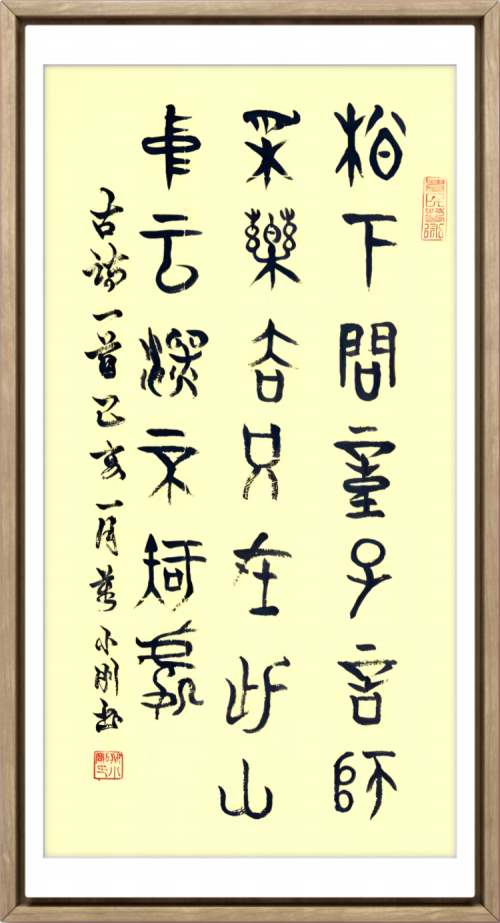 松下問童子言師
采藥去只在此山
中云深不知處
古詩一首己亥一月小刚书